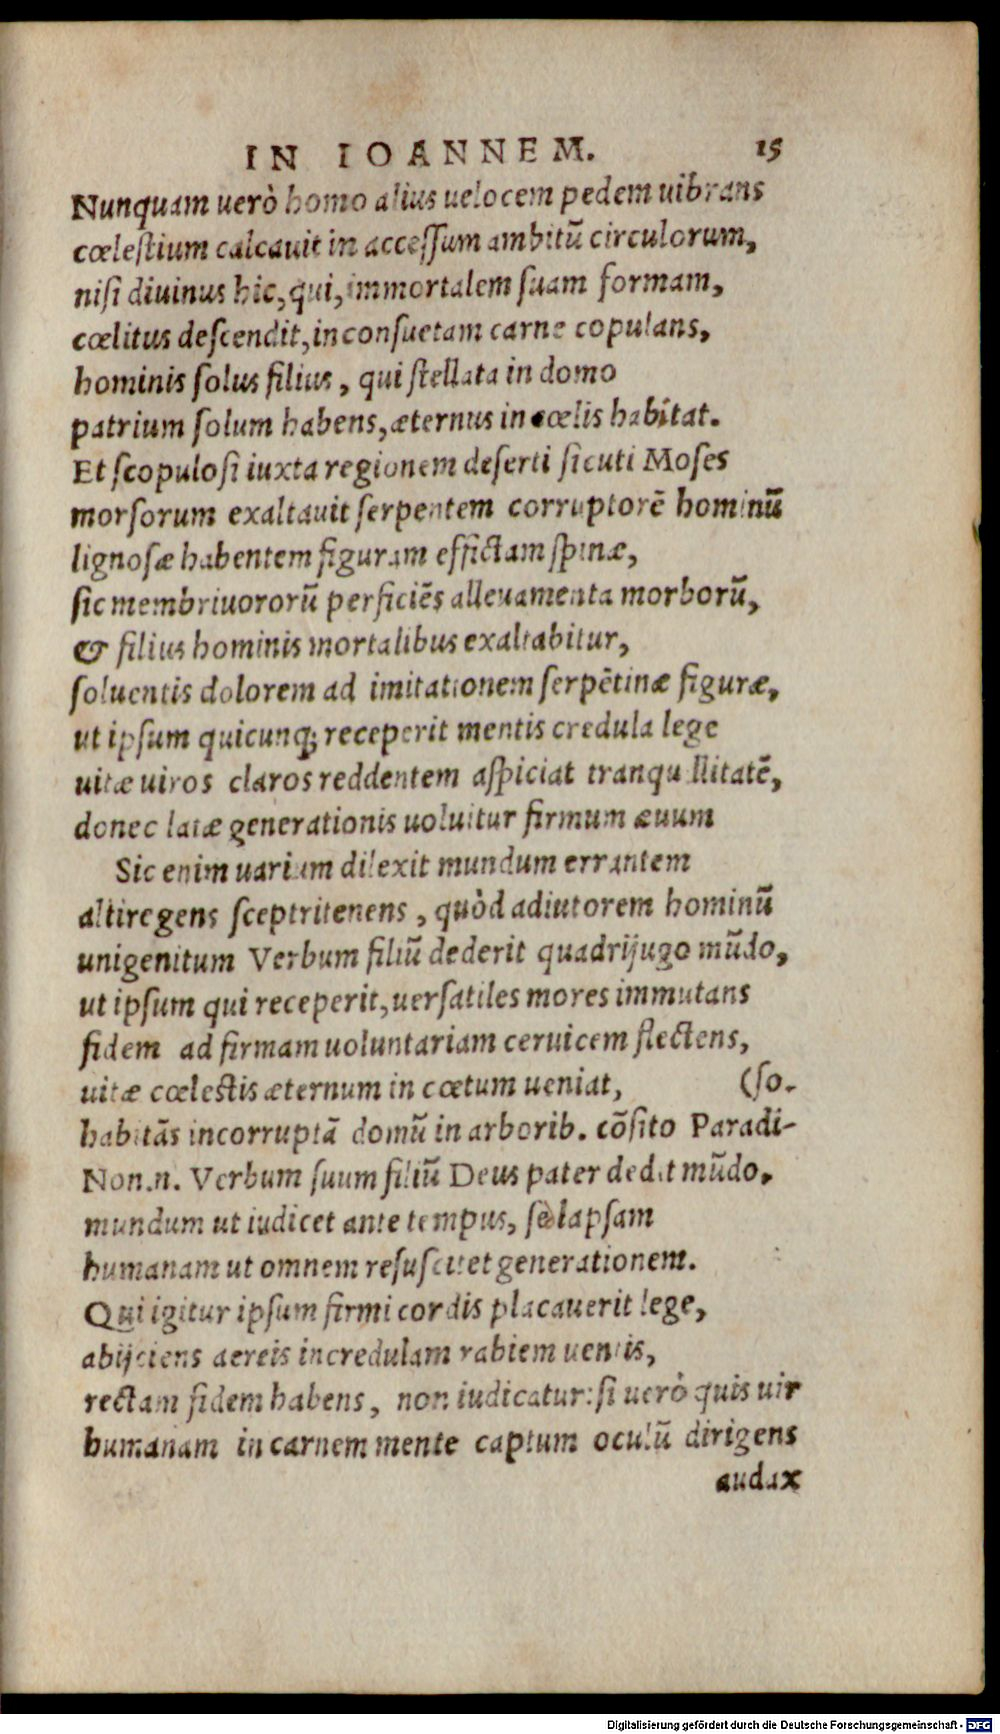 IN IOANNEM. 15
Nunquam uerò homo alius uelocem pedem uibrans
cœlestium calcauit in accessum ambitũ circulorum,
nisi diuinus hic, qui, immortalem suam formam,
cœlitus descendit, inconsuetam carne copulans,
hominis solus filius, qui stellata in domo
patrium solum habens, æternus in cœlis habitat.
Et scopulosi iuxta regionem deserti sicuti Moses
morsorum exaltauit serpentem corruptorẽ hominũ
lignosæ habentem figuram effictam spinæ,
sic membriuororũ perficiẽs alleuamenta morborũ,
& filius hominis mortalibus exaltabitur,
soluentis dolorem ad imitationem serpẽtinæ figuræ,
ut ipsum quicunq; receperit mentis credula lege
uitæ uiros claros reddentem aspiciat tranquillitatẽ,
donec latæ generationis uoluitur firmum æuum
Sic enim uarium dilexit mundum errantem
altiregens sceptritenens, quòd adiutorem hominũ
unigenitum Verbum filiũ dederit quadrijugo mũdo,
ut ipsum qui receperit, uersatiles mores immutans
fidem ad firmam uoluntariam ceruicem flectens,
uitæ cœlestis æternum in cœtum ueniat, (so.
habitãs incorruptã domũ in arborib. cõsito Paradi-
Non.n. Verbum suum filiũ Deus pater dedit mũdo,
mundum ut iudicet ante tempus, sed lapsam
humanam ut omnem resuscitet generationem.
Qui igitur ipsum firmi cordis placauerit lege,
abijciens aereis incredulam rabiem uentis,
rectam fidem habens, non iudicatur: si uerò quis uir
humanam in carnem mente captum oculũ dirigens
audax
Digitalisierung gefördert durch die Deutsche Forschungsgemeinschaft - DFG